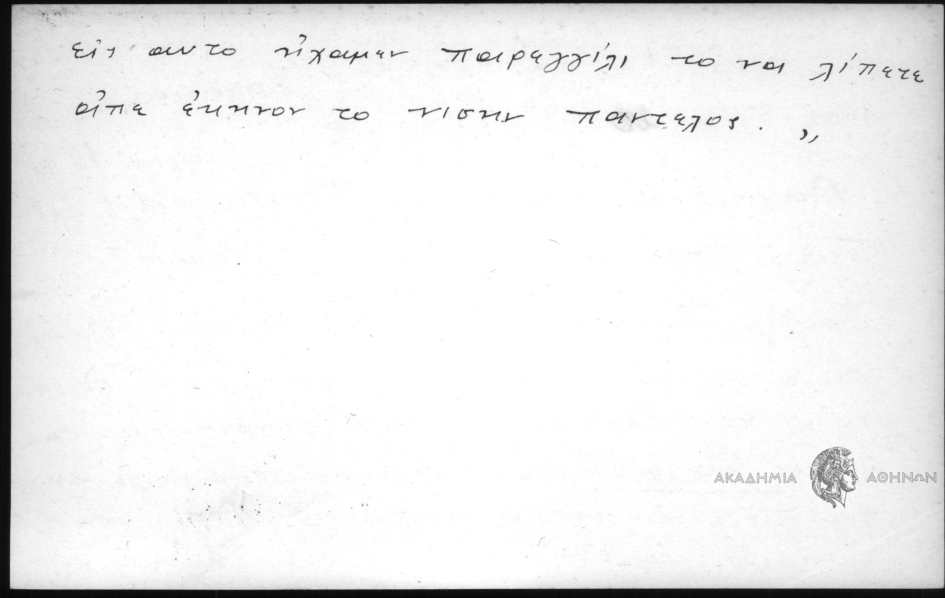 εἰς αυτο ἠχαμεν παρεγγίλι το να λίπετε
ἀπε ἐκηνον το νισην παντελος. „
ΑΚΑΔΗΜΙΑ ΑΘΗΝΩΝ